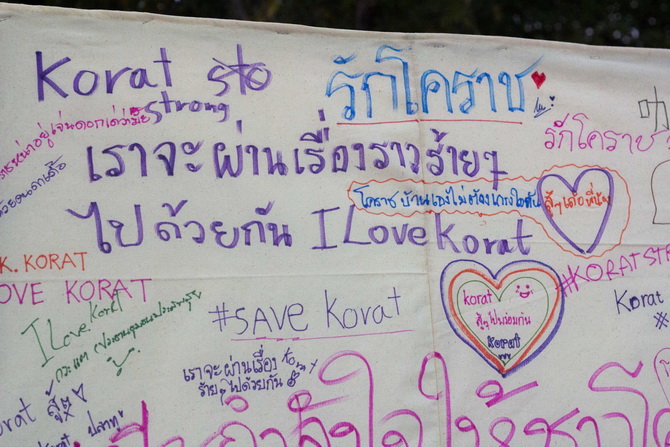 Korat sto
strong
รักโคราช
รักโคราช
เราจะผ่านเรื่องราวร้ายๆ
ไปด้วยกัน I Love Korat
โคราช บ้านเอง ไม่ต้องเกรงใจกัน
K. KORAT
OVE KORAT
I Love Korat
#SAVE Korat
#KORAT STR
Korat
korat
สู้ๆไปพร้อมกัน
korat
เราจะผ่านเรื่อง
ร้ายๆไปด้วยกัน
orat สู้ๆ
กำลังใจให้ชาวโค